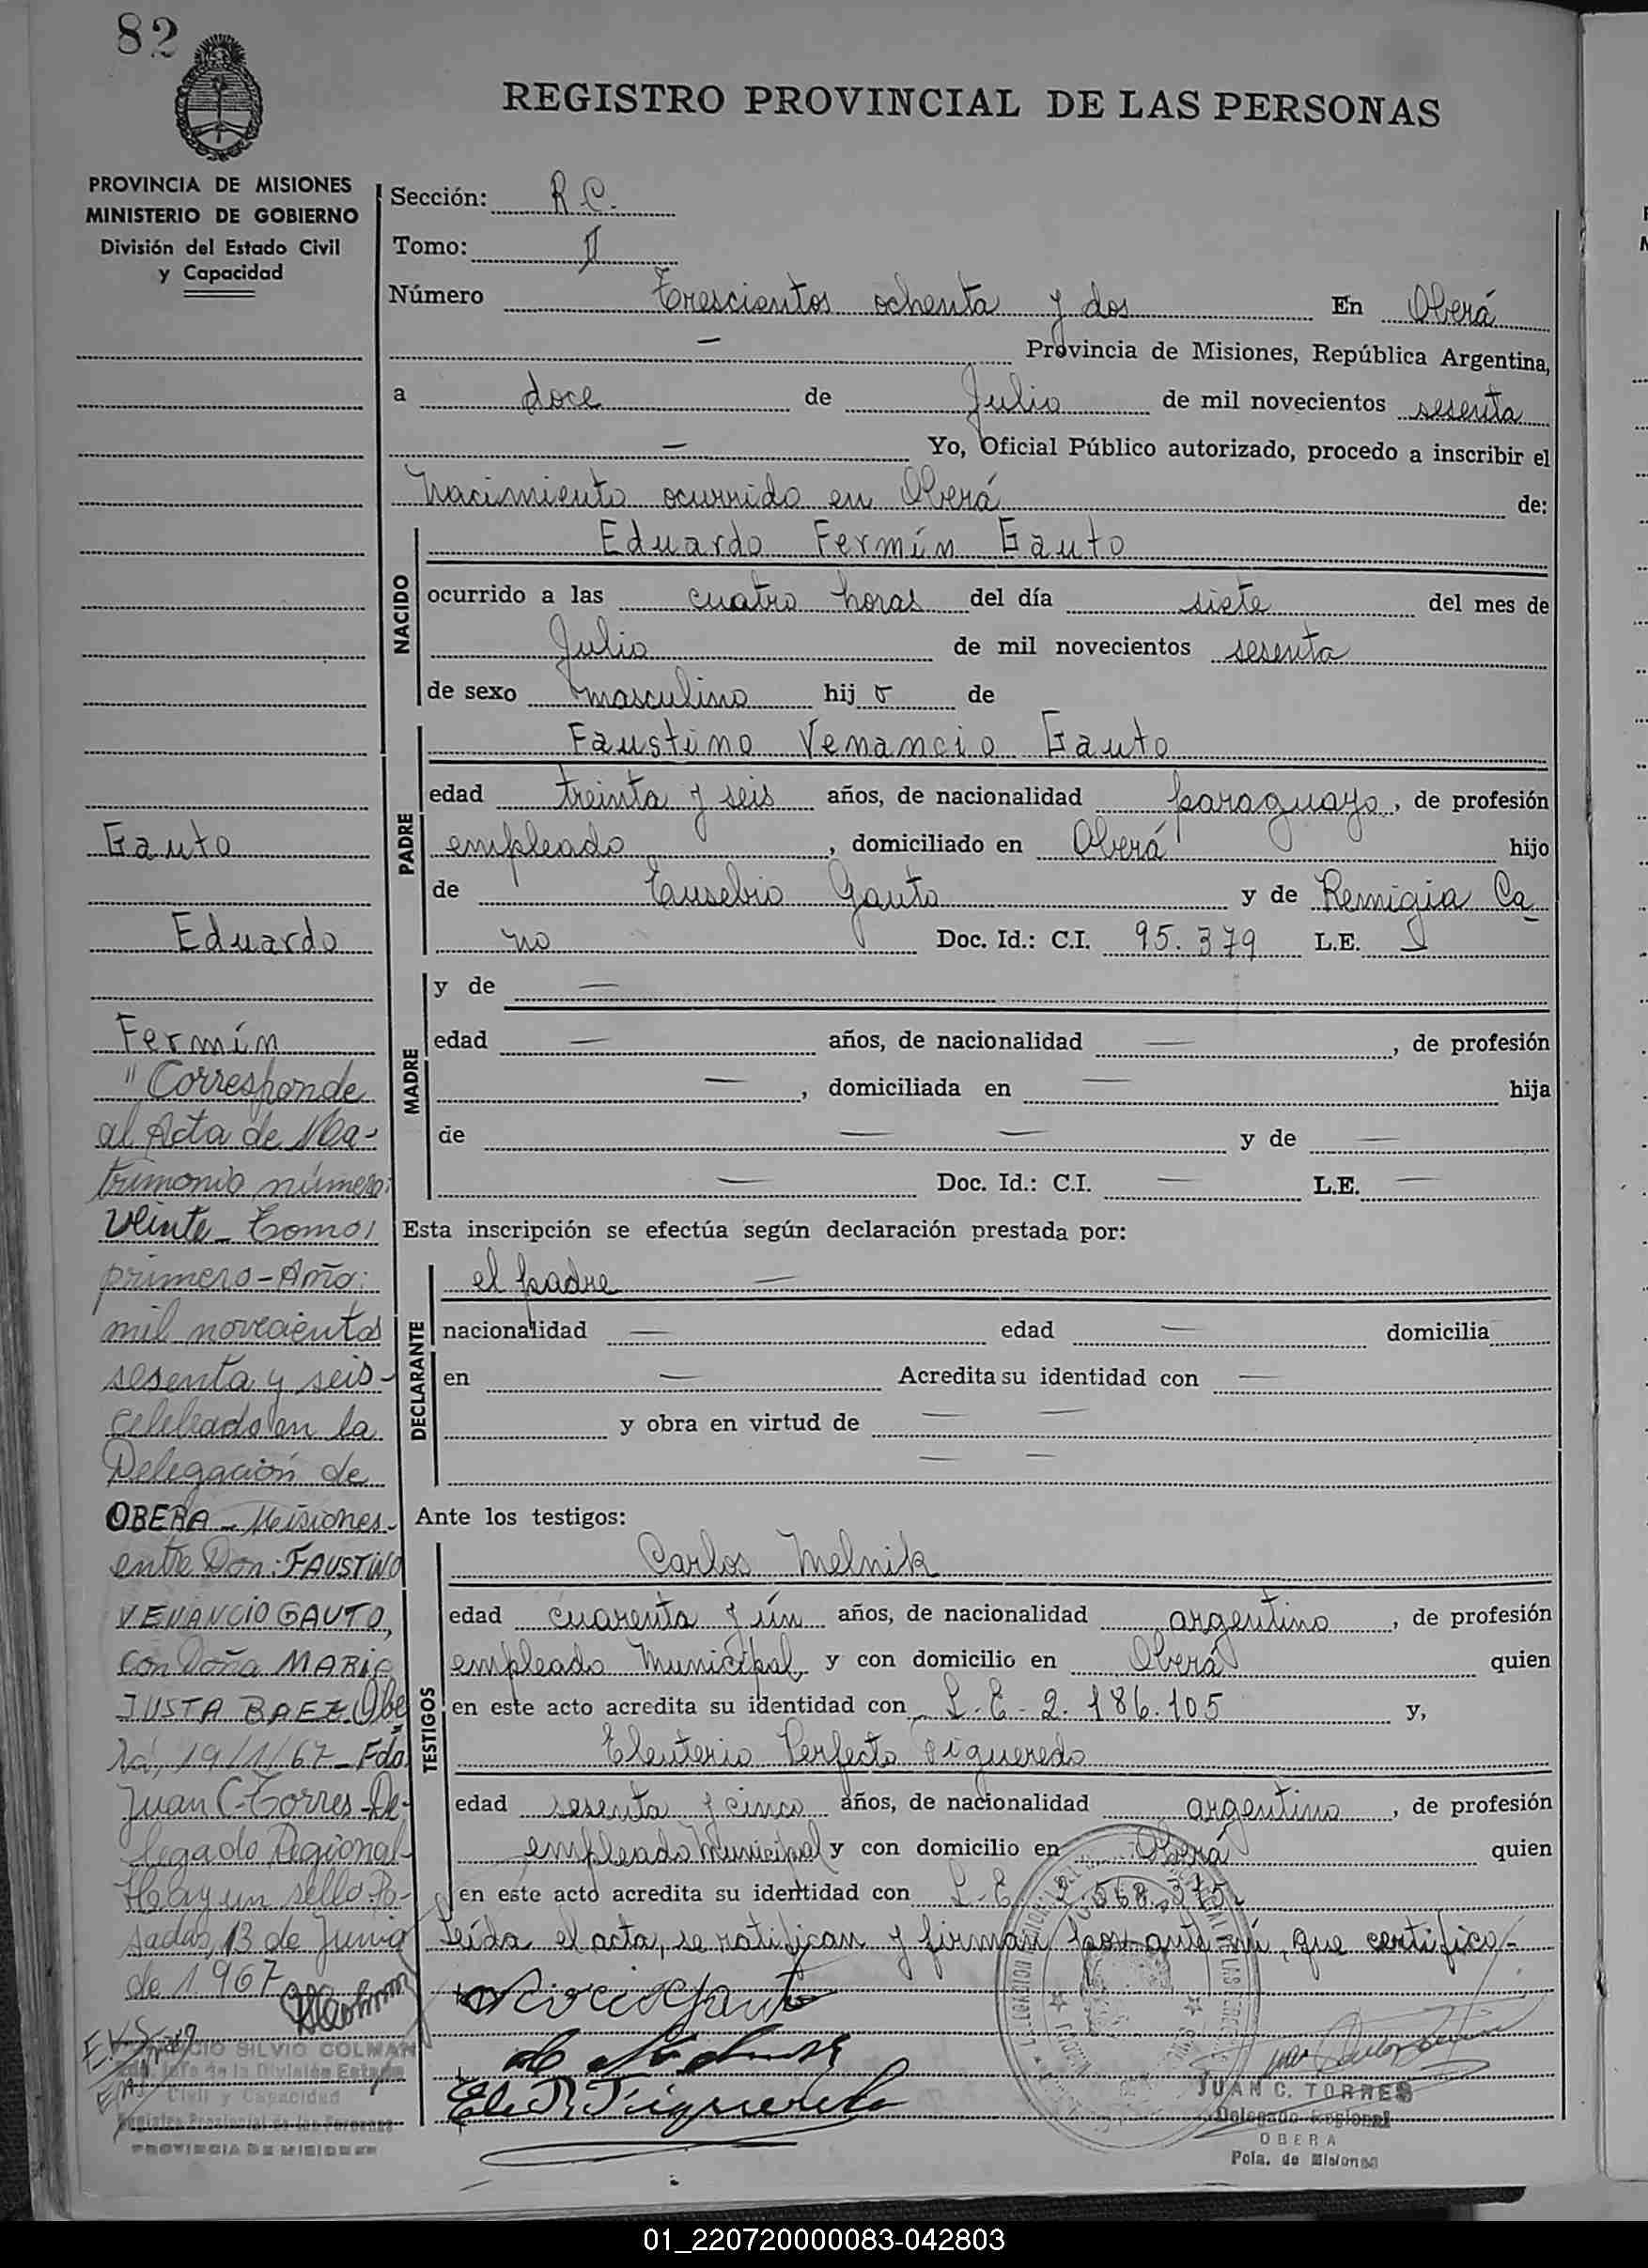 82
REGISTRO PROVINCIAL DE LAS PERSONAS
PROVINCIA DE MISIONES
MINISTERIO DE GOBIERNO
División del Estado Civil
y Capacidad
Sección: R.C.
Tomo: II
Número Trescientos ochenta y dos En Oberá
— Provincia de Misiones, República Argentina,
a doce de Julio de mil novecientos sesenta
— Yo, Oficial Público autorizado, procedo a inscribir el
Nacimiento ocurrido en Oberá de:
NACIDO
Eduardo Fermín Gauto
ocurrido a las cuatro horas del día siete del mes de
Julio de mil novecientos sesenta
de sexo masculino hijo de
PADRE
Faustino Venancio Gauto
edad treinta y seis años, de nacionalidad paraguayo, de profesión
empleado, domiciliado en Oberá hijo
de Eusebio Gauto y de Remigia Ca-
no Doc. Id.: C.I. 95.379 L.E.
MADRE
y de —
edad — años, de nacionalidad —, de profesión
—, domiciliada en — hija
de — — y de —
— Doc. Id.: C.I. — L.E. —
Esta inscripción se efectúa según declaración prestada por:
DECLARANTE
el padre —
nacionalidad — edad — domicilia
en — Acredita su identidad con —
y obra en virtud de — —
— —
Ante los testigos:
TESTIGOS
Carlos Melnik
edad cuarenta y ún años, de nacionalidad argentino, de profesión
empleado Municipal y con domicilio en Oberá quien
en este acto acredita su identidad con L-E-2.186.105 y,
Eleuterio Perfecto Figueredo
edad sesenta y cinco años, de nacionalidad argentino, de profesión
empleado Municipal y con domicilio en Oberá quien
en este acto acredita su identidad con L-E. 2.568.375.
Leída el acta, se ratifican y firman por ante mí, que certifico.-
JUAN C. TORRES
Delegado Regional
OBERA
Pcia. de Misiones
Gauto
Eduardo
Fermín
"Corresponde
al Acta de Ma-
trimonio número:
Veinte - Tomo:
primero - Año:
mil novecientos
sesenta y seis -
celebrado en la
Delegación de
OBERA - Misiones -
entre Don: FAUSTINO
VENANCIO GAUTO,
con Doña MARIA
JUSTA BAEZ. Obe
rá, 19/1/67 - Fdo
Juan C. Torres - De-
legado Regional
Hay un sello. Po-
sadas, 13 de Junio
de 1967
SILVIO COLMAN
de la División Estado
Civil y Capacidad
Registro Provincial de las Personas
PROVINCIA DE MISIONES
01_220720000083-042803